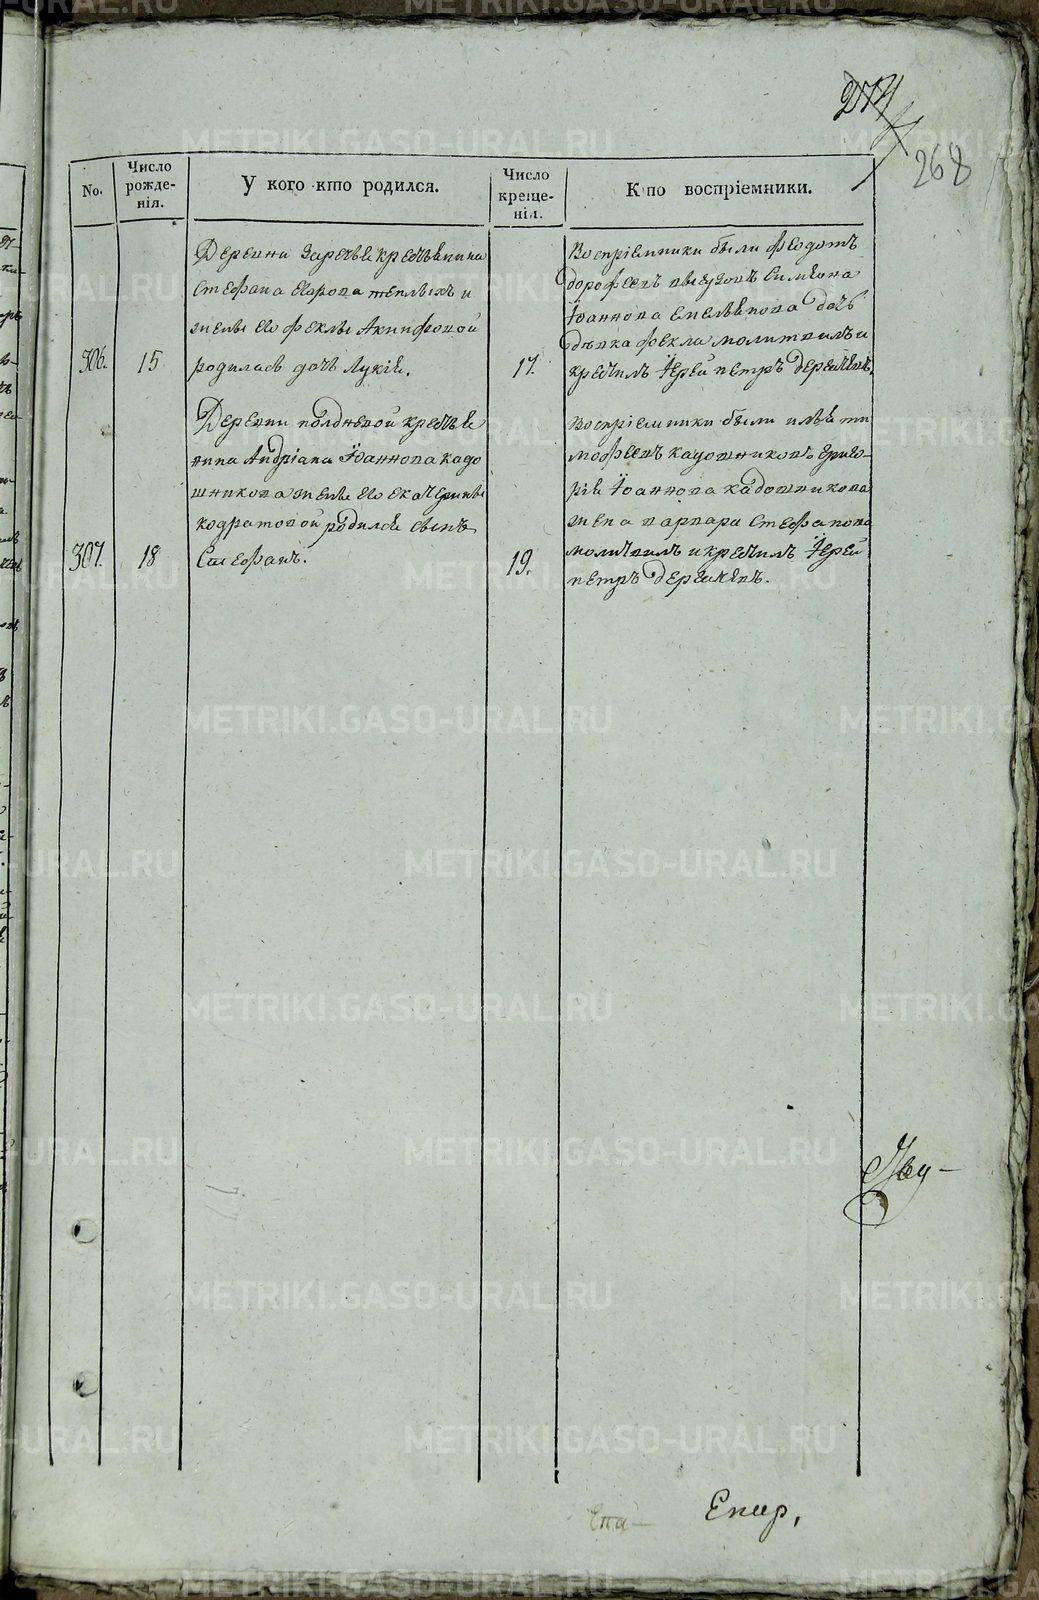 268
No.
Число рожде-нія.
У кого кто родился.
Число креще-нія.
Кто воспріемники.
306.
15
Деревни Заречья крестьянина
Стефана Егорова теплыхъ и
жены его Феклы Акинфовой
родилась дочь Лукія.
17.
Воспріемники были Феодотъ
дорофеевъ Симеона
Іоаннова Емельянова дочь
дѣвка Фекла молитвилъ и
крестилъ Іерей петръ дерябинъ.
307.
18
Деревни полдневой крестья
нина Андріана Іоаннова кадо
шникова жены его екатерины
кодратовой родился сынъ
Стефанъ.
19.
воспріемники были илья ти
мофеевъ кадошниковъ григо-
рія Іоаннова кадошникова
жена варвара стефанова
молитвилъ и крестилъ Іерей
петръ дерябинъ.
METRIKI.GASO-URAL.RU